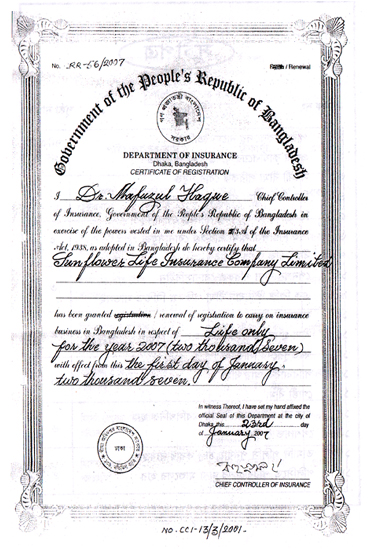 No. RR-56/2007
Fresh / Renewal
Government of the People's Republic of Bangladesh
DEPARTMENT OF INSURANCE
Dhaka, Bangladesh
CERTIFICATE OF REGISTRATION
I Dr. Mafuzul Haque Chief Controller
of Insurance, Government of the People's Republic of Bangladesh in
exercise of the powers vested in me under Section 3A of the Insurance
Act, 1938, as adopted in Bangladesh do hereby certify that
Sunflower Life Insurance Company Limited
has been granted registration / renewal of registration to carry on insurance
business in Bangladesh in respect of Life only
for the year 2007 (two thousand seven)
with effect from this the first day of January
two thousand seven.
In witness Thereof, I have set my hand affixed the
official Seal of this Department at the city of
Dhaka this 23rd day
of January 2007
ঢাকা
CHIEF CONTROLLER OF INSURANCE
NO. CCI-13/3/2001-